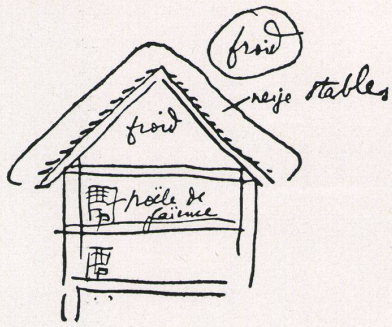 froid
neige stables
froid
poële de
faïence